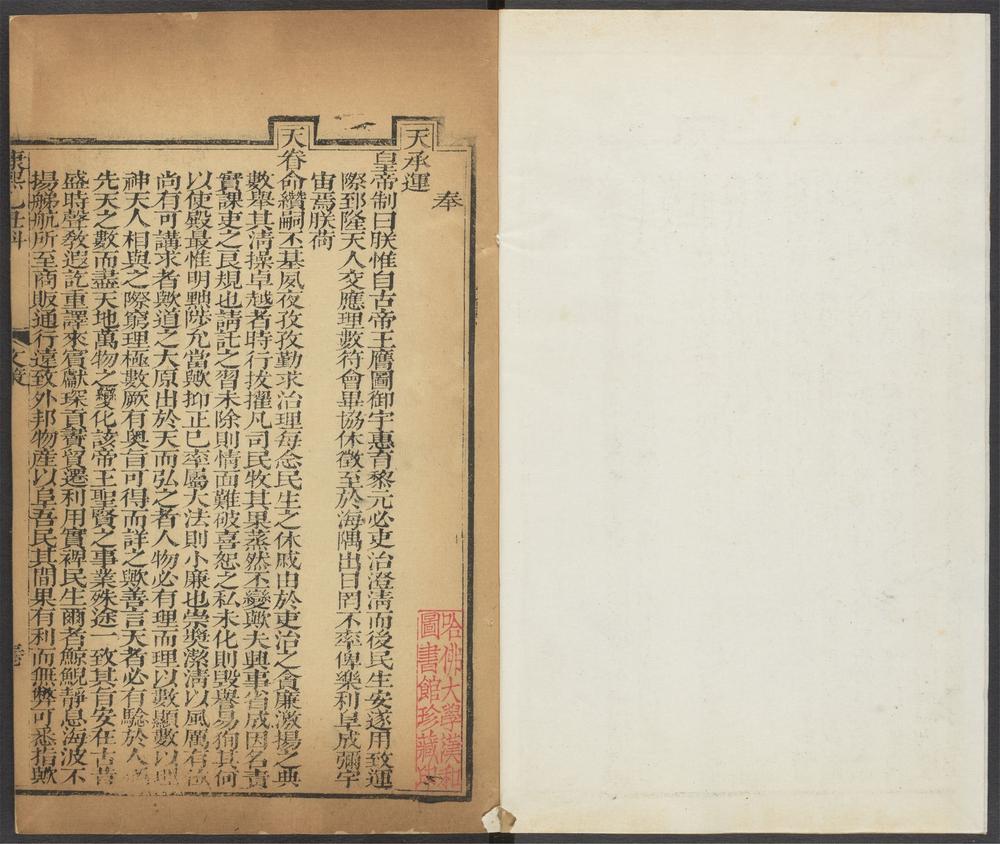 奉
天承運
皇帝制曰朕惟自古帝王膺圖御宇惠育黎元必吏治澄清而後民生安遂用致運
際郅隆天人交應理數符會畢協休徵至於海隅出日罔不率俾樂利阜成彌宇
宙焉朕荷
天眷命纘嗣丕基夙夜孜孜勤求治理每念民生之休戚由於吏治之貪廉激揚之典
數舉其清操卓越者時行拔擢凡司民牧其果蒸然丕變歟夫興事省成因名責
實課吏之良規也請託之習未除則情面難破喜恕之私未化則毀譽易狥其何
以使殿最惟明黜陟允當歟抑正己率屬大法則小廉也崇奬潔清以風厲有
尚有可講求者歟道之大原出於天而弘之者人物必有理而理以數顯數以理
神天人相與之際窮理極數厥有奥旨可得而詳之歟善言天者必有驗於人
先天之數而盡天地萬物之變化該帝王聖賢之事業殊途一致其旨安在古昔
盛時聲敎遐訖重譯來賓獻琛貢賮貿遷利用實裨民生爾者鯨鯢靜息海波不
揚梯航所至商販通行遠致外邦物產以阜吾民其間果有利而無弊可悉指歟
康熙乙丑科 文策
哈佛大學漢和
圖書館珍藏印